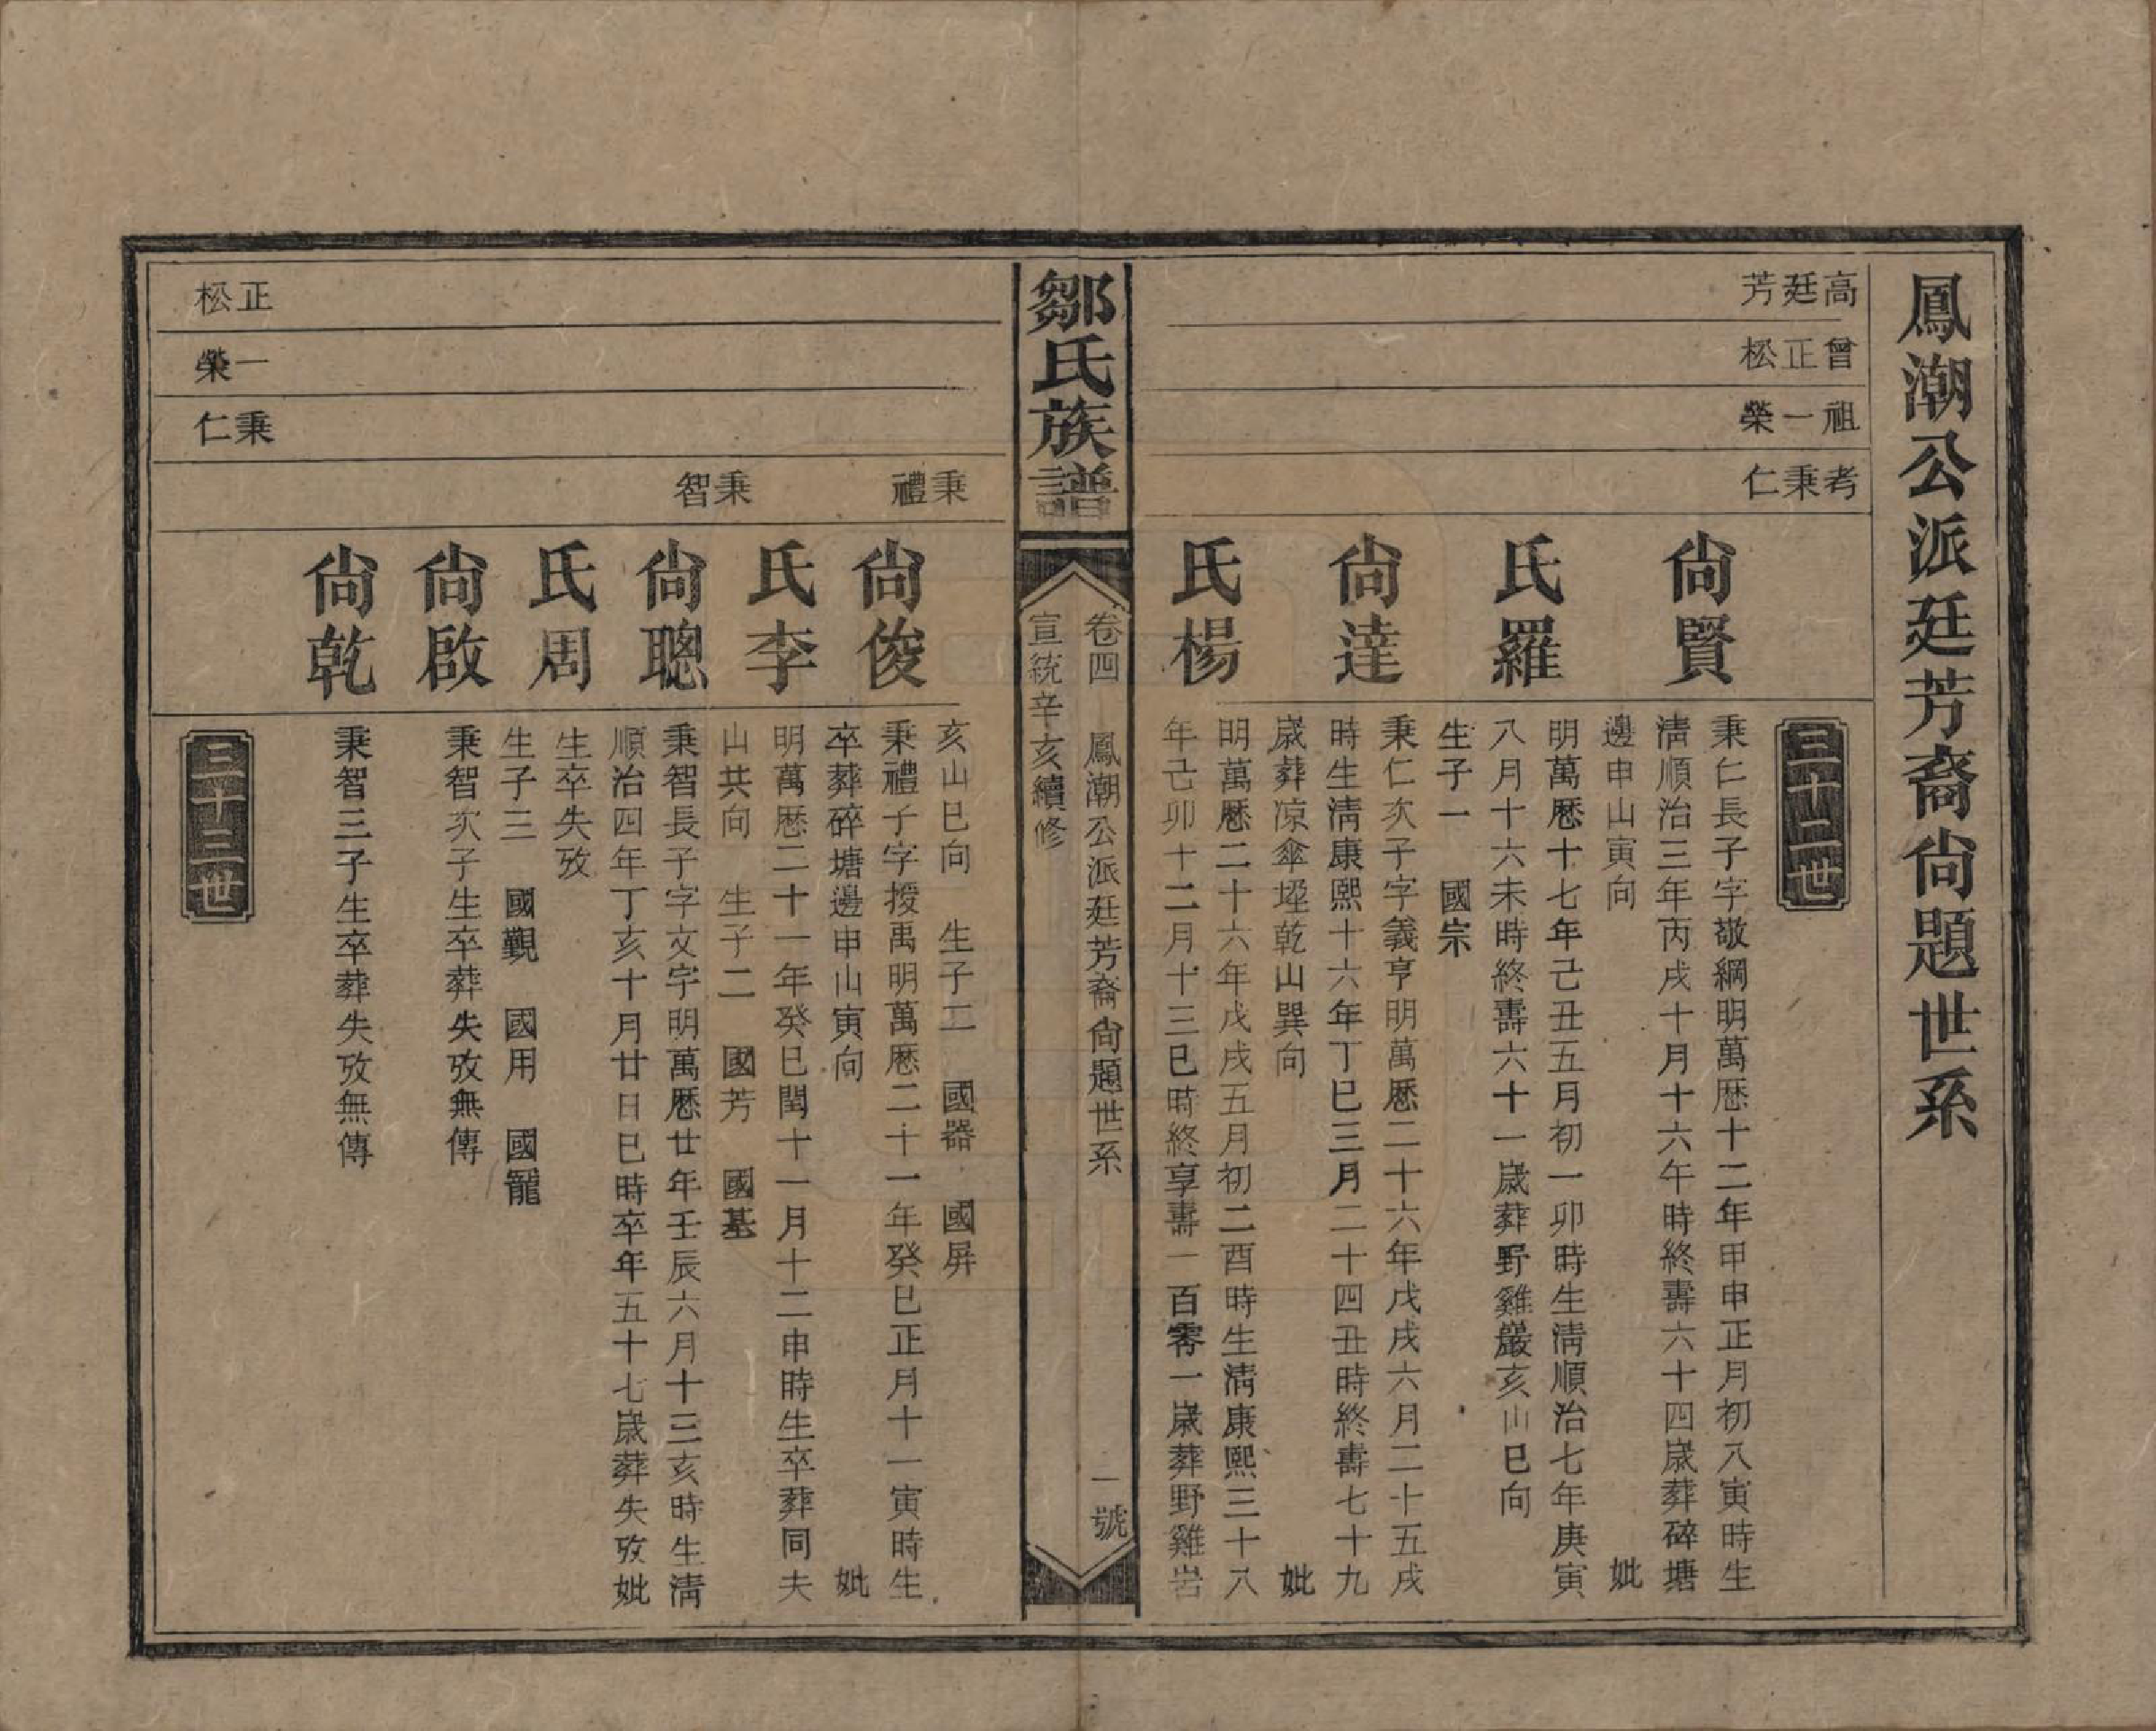 鳳潮公派廷芳裔尙題世系
高廷芳
曾正松
祖一榮
考秉仁
三十二世
尙賢
秉仁長子字敬綱明萬歷十二年甲申正月初八寅時生
淸順治三年丙戌十月十六午時終壽六十四歲葬碎塘
邊申山寅向 妣
氏羅
明萬歷十七年己丑五月初一卯時生淸順治七年庚寅
八月十六未時終壽六十一歲葬野雞巖亥山巳向
生子一 國宗
尙達
秉仁次子字義亨明萬歷二十六年戊戌六月二十五戌
時生淸康熙十六年丁巳三月二十四丑時終壽七十九
歲葬凉傘埊乾山巽向 妣
氏楊
明萬歷二十六年戊戌五月初二酉時生淸康熙三十八
年己卯十二月十三巳時終享壽一百零一歲葬野雞岩
鄒氏族譜
卷四 鳳潮公派廷芳裔尙題世系 一號
宣統辛亥續修
亥山巳向 生子二 國器 國屏
秉禮
尙俊
秉禮子字授禹明萬歷二十一年癸巳正月十一寅時生
卒葬碎塘邊申山寅向 妣
氏李
明萬歷二十一年癸巳閏十一月十二申時生卒葬同夫
山共向 生子二 國芳 國基
秉智
尙聰
秉智長子字文字明萬歷廿年壬辰六月十三亥時生淸
順治四年丁亥十月廿日巳時卒年五十七歲葬失攷妣
氏周
生卒失攷
生子三 國觀 國用 國龍
尙啟
秉智次子生卒葬失攷無傳
尙乾
秉智三子生卒葬失攷無傳
正松
一榮
秉仁
三十三世